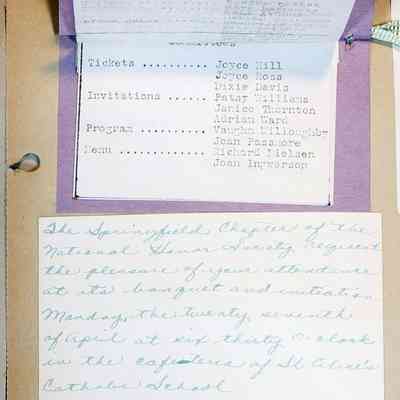 Committees
Tickets .......... Joyce Hill
Joyce Ross
Dixie Davis
Invitations ...... Patsy Williams
Janice Thornton
Adrian Ward
Program .......... Vaughn Willoughby
Joan Passmore
Menu ............. Richard Nielsen
Joan Ingwerson
The Springfield Chapter of the
National Honor Society request
the pleasure of your attendance
at its banquet and initiation
Monday, the twenty seventh
of April at six thirty O'clock
in the cafeteria of St
Catholic School